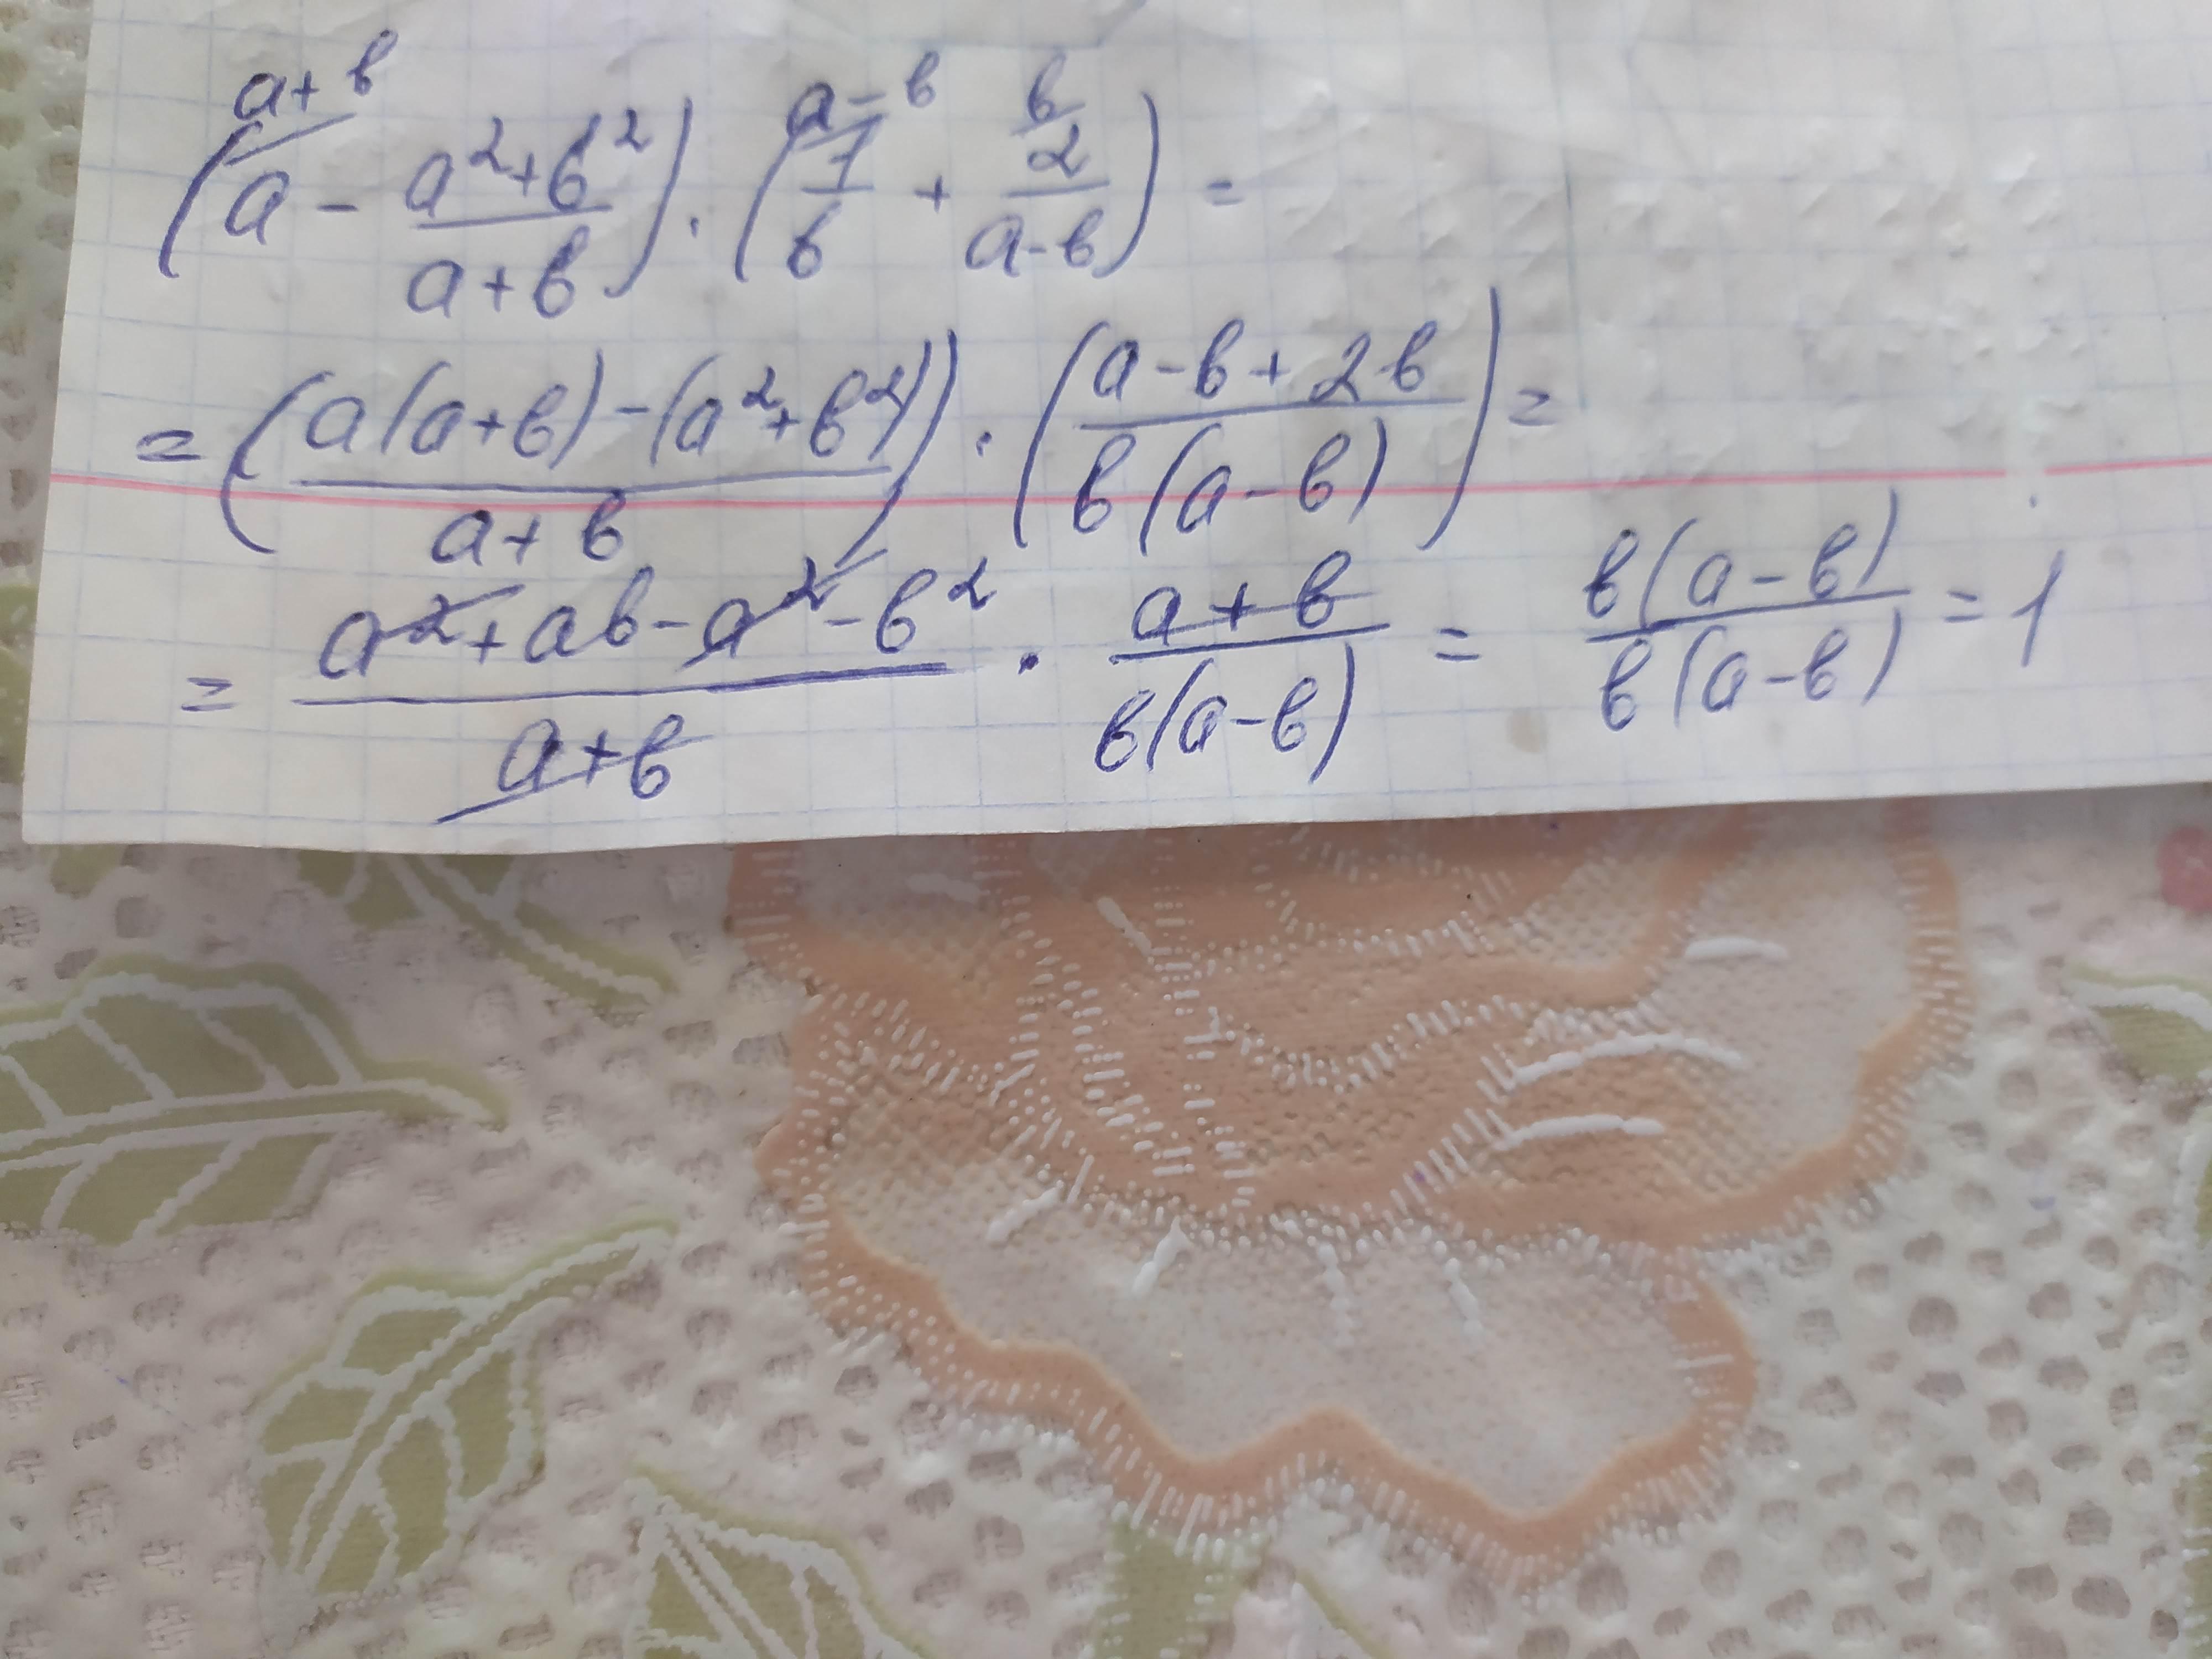 a+b a-b b
(a - a²+b²/a+b) · (1/b + 2/a-b) =
= (a(a+b)-(a²+b²)/a+b) · (a-b+2b/b(a-b)) =
= a²+ab-a²-b²/a+b · a+b/b(a-b) = b(a-b)/b(a-b) = 1